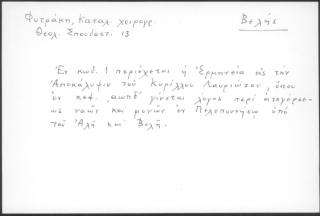 Φυτράκη, Καταλ. χειρογρ.
Βελής
Θεολ. Σπουδαστ. 13
Ἐν κωδ. 1 περιέχεται ἡ Ἑρμηνεία εἰς τὴν
Ἀποκάλυψιν τοῦ Κυρίλλου Λαυριώτου, ὅπου
ἐν κεφ. γίνεται λόγος περὶ ἀπαγορεύ-
σεως ναῶν καὶ μονῶν ἐν Πελοποννήσῳ ὑπὸ
τοῦ Ἀλῆ καὶ Βελῆ.